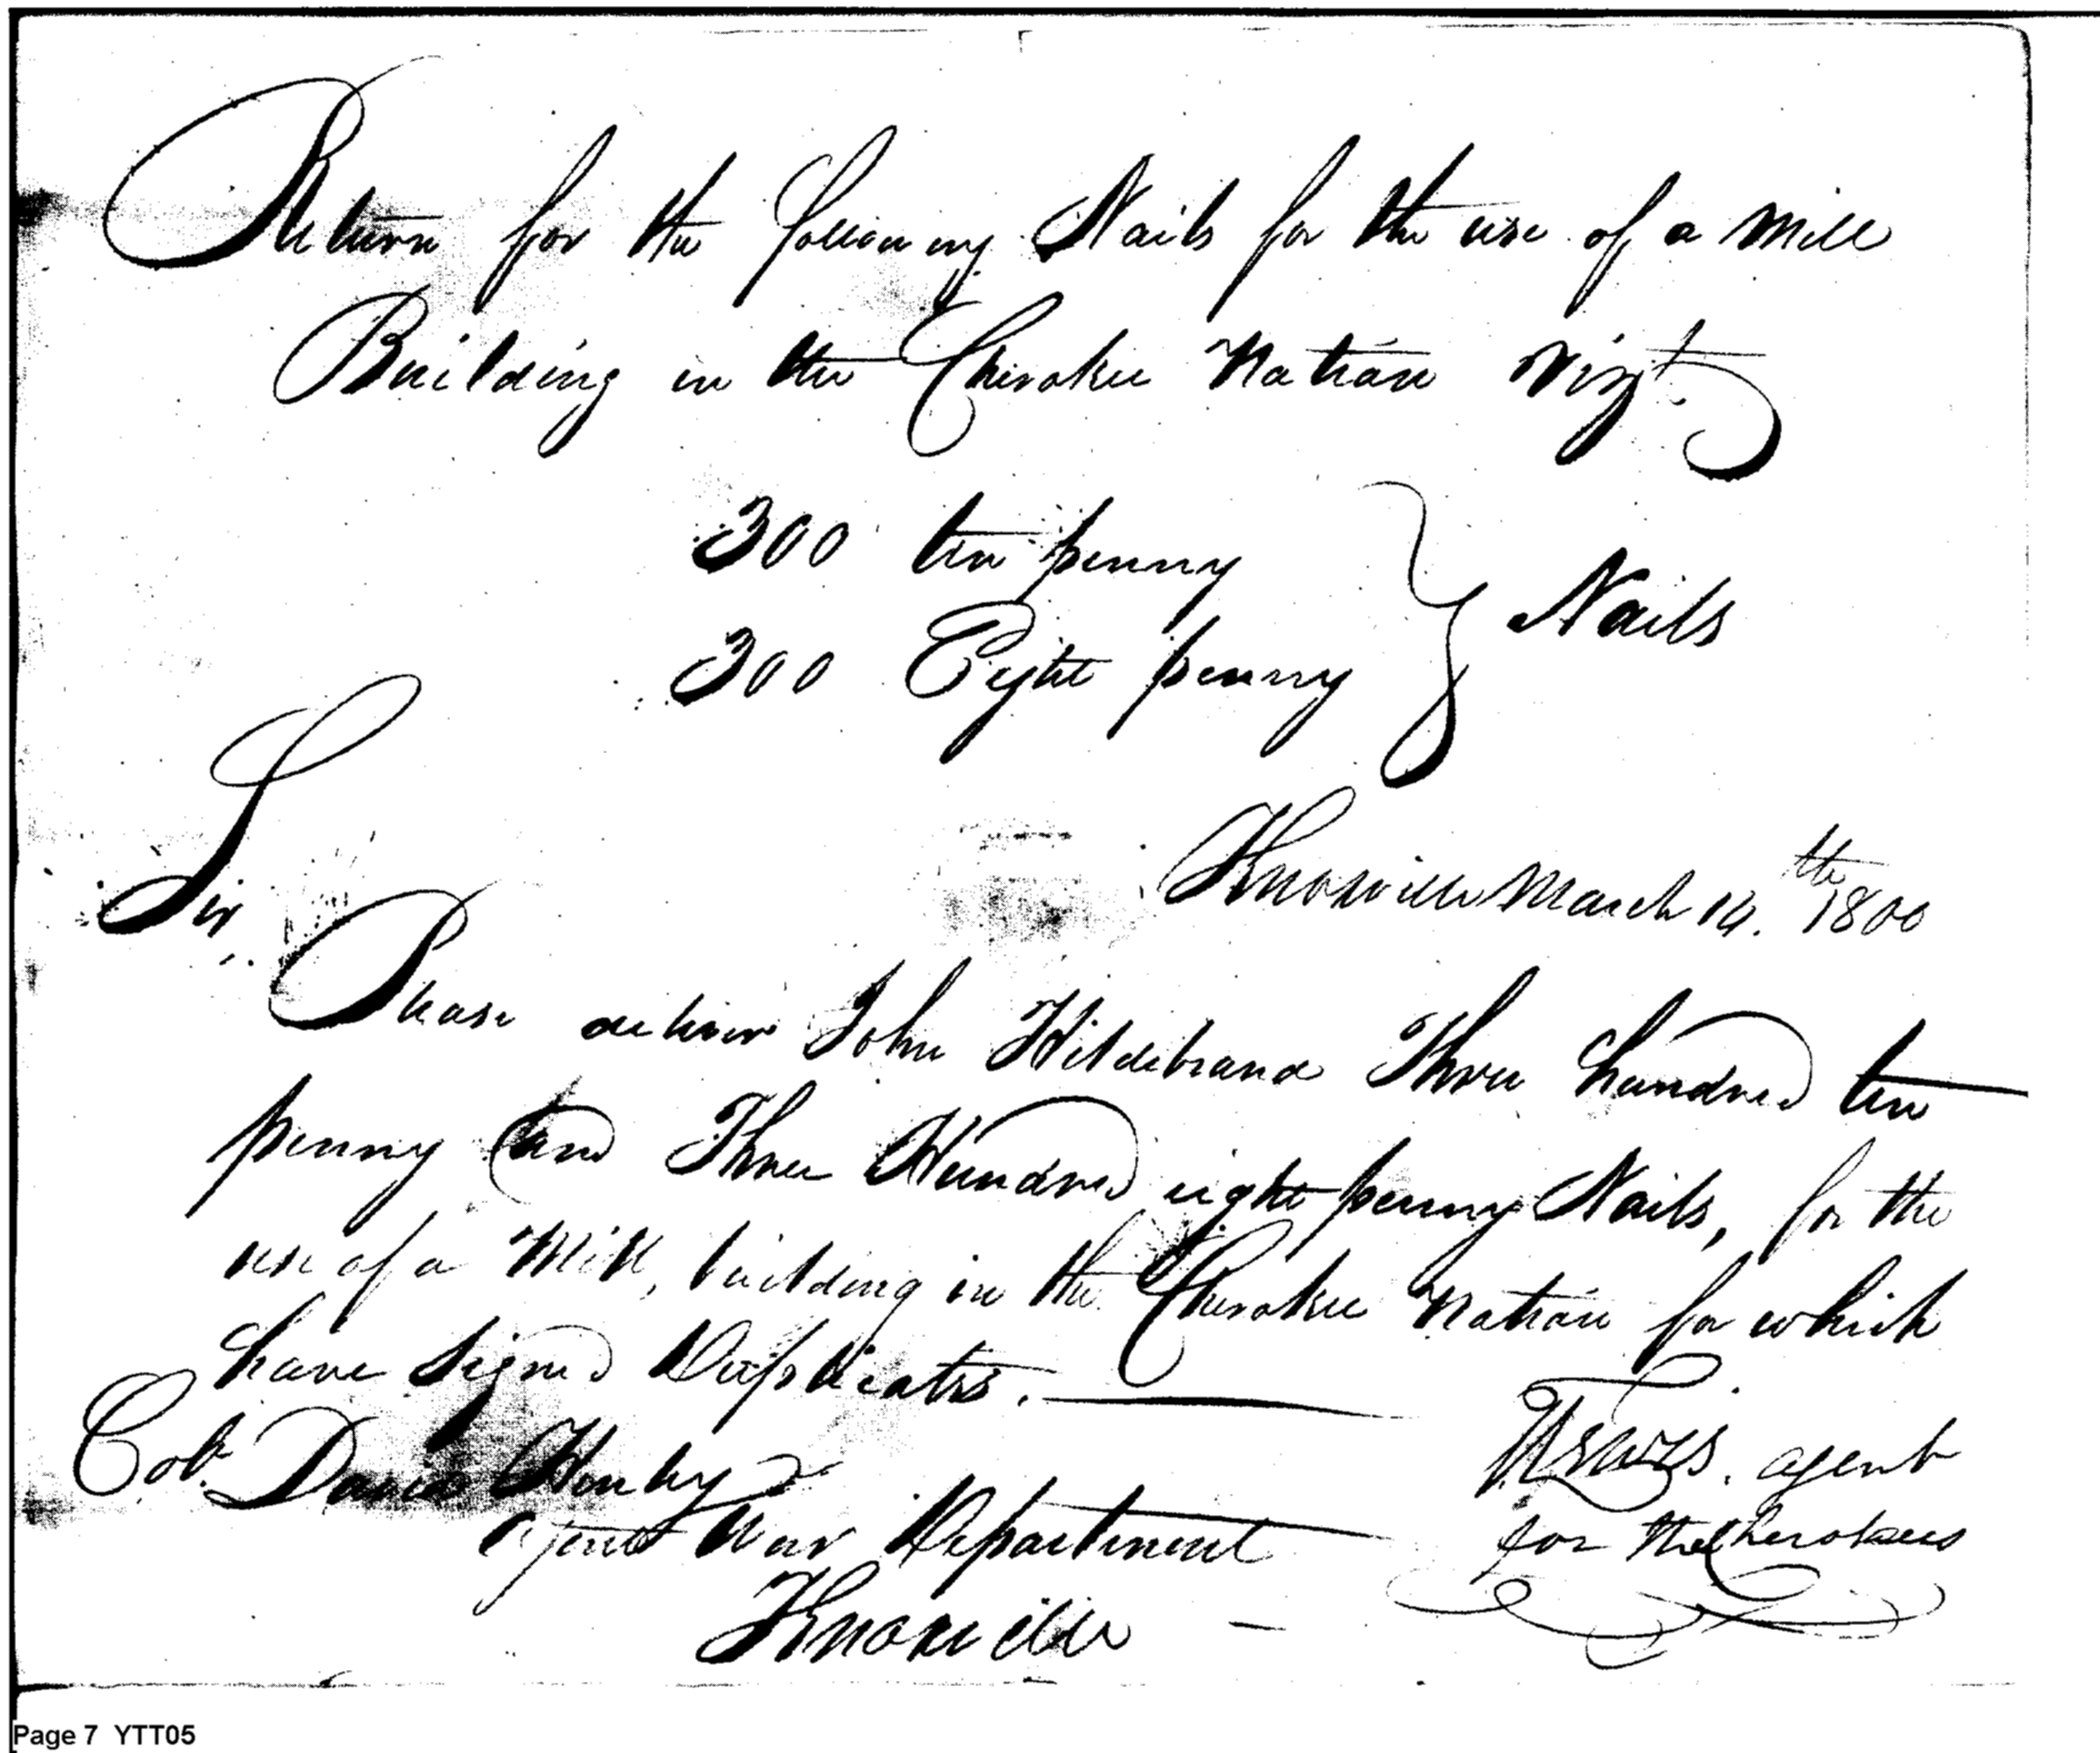 Return for the following Nails for the use of a Mill
Building in the Cherokee Nation Vizt.
300 ten penny
300 Eight penny } Nails
Knoxville March 14th 1800
Sir,
Please deliver John Hildebrand Three hundred ten
penny and Three Hundred eight penny Nails, for the
use of a Mill, building in the Cherokee Nation for which
have signed Duplicates.
Col. David Henley
agent War Department
Knoxville
agent
for the Cherokees
Page 7 YTT05